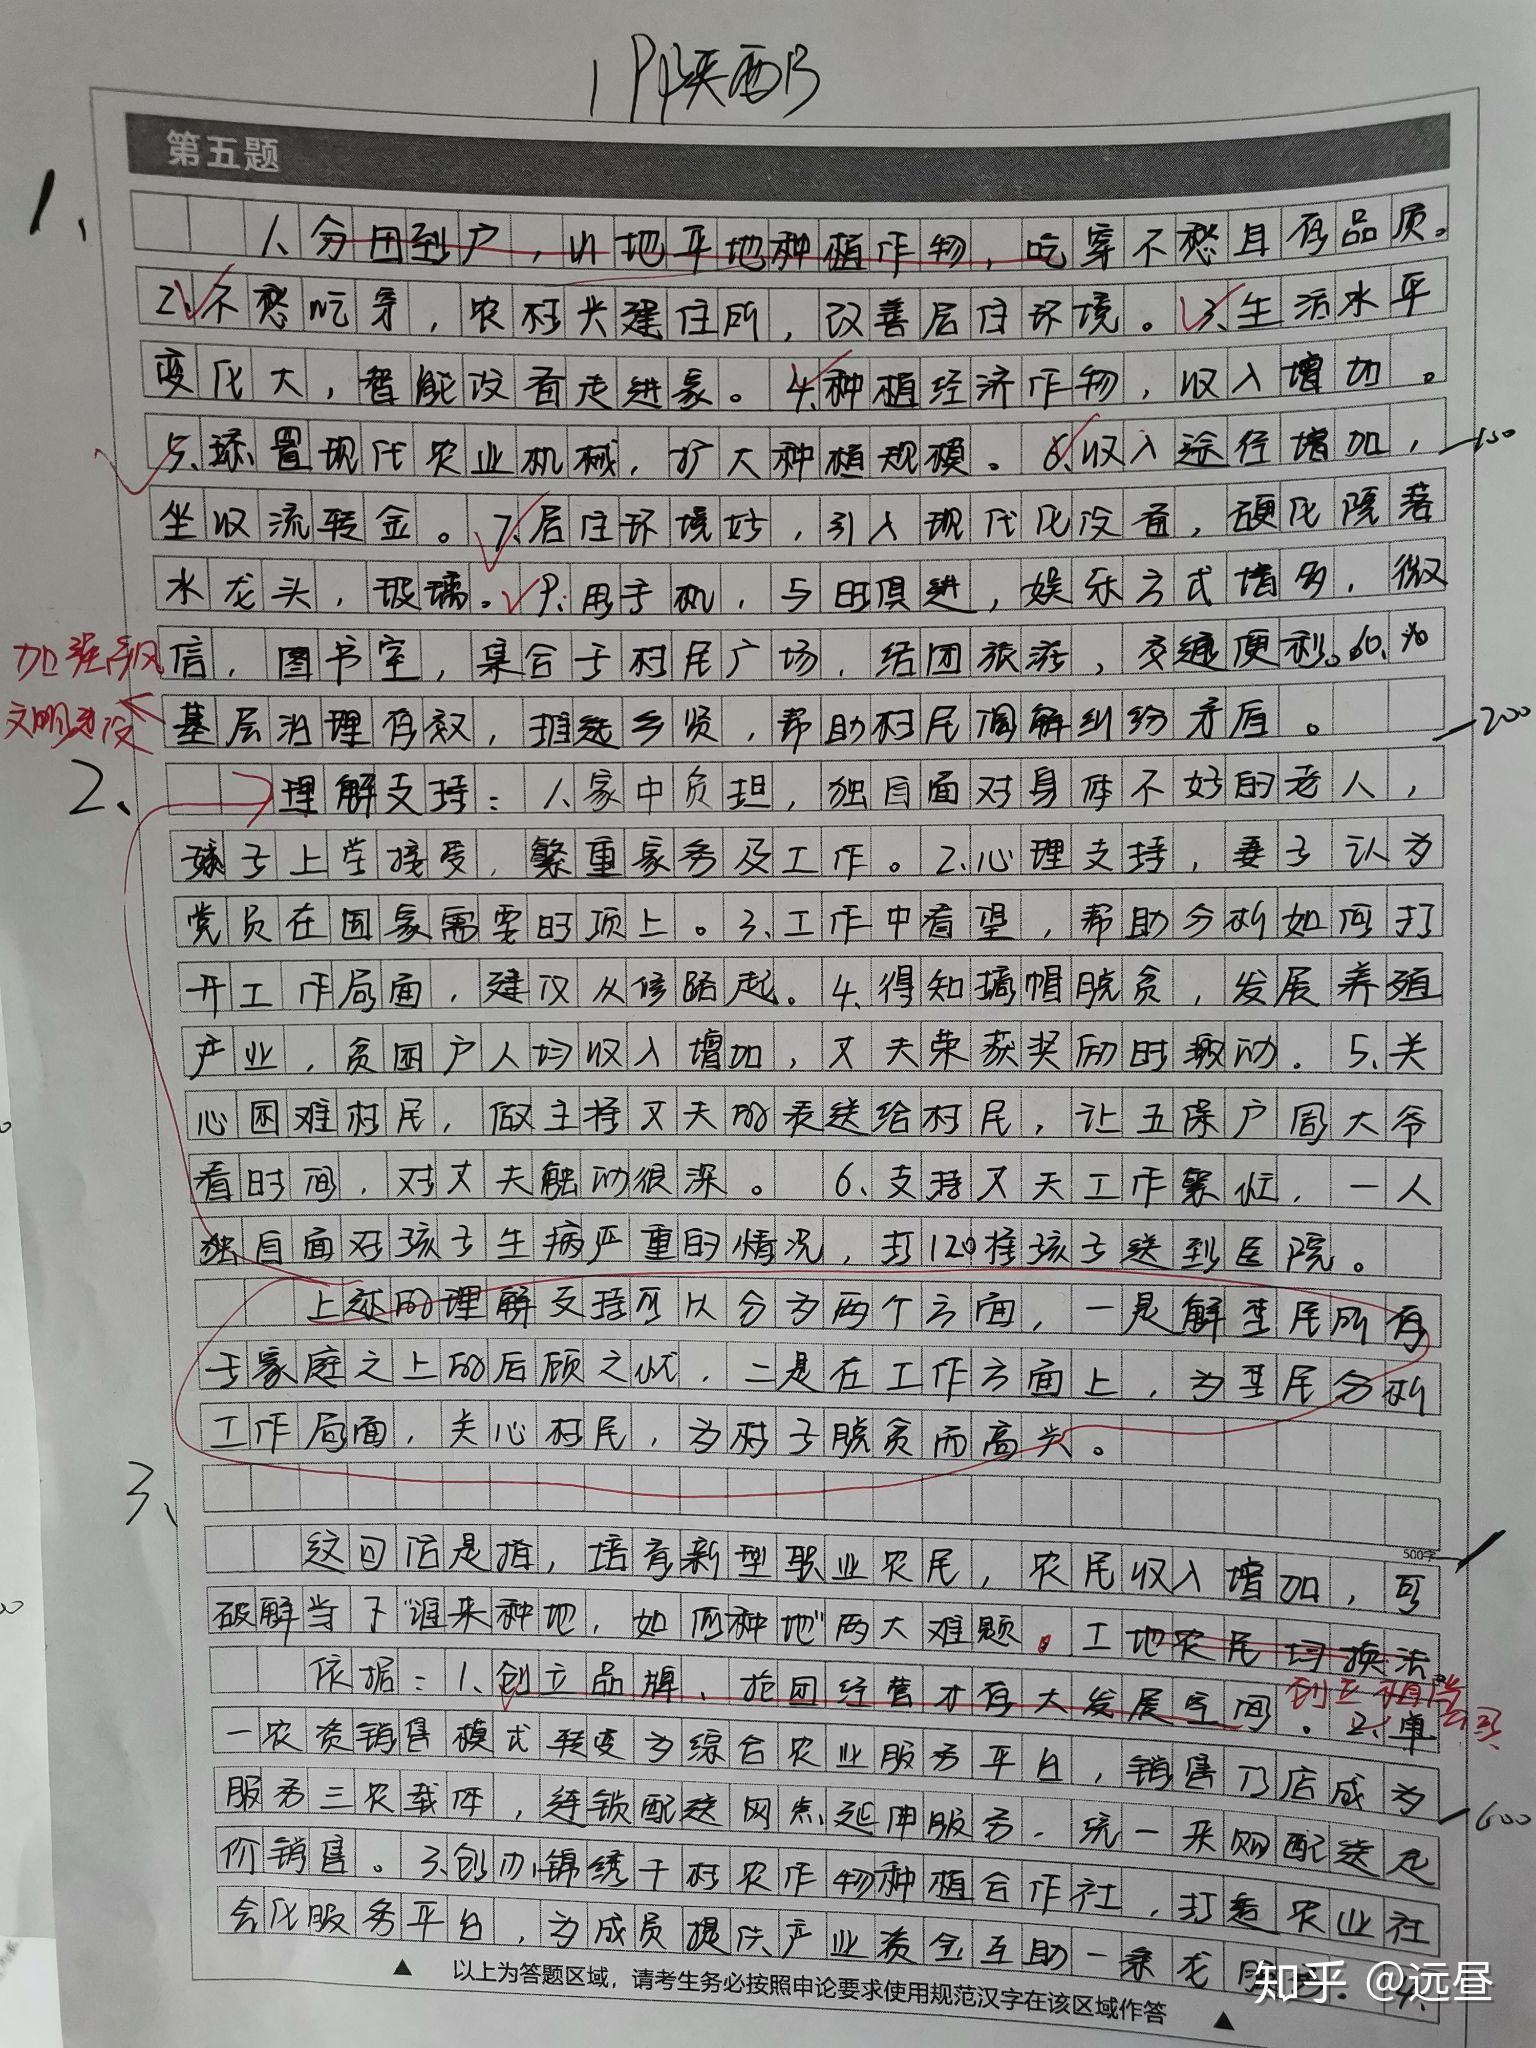 陕西B
第五题
1、
1、分田到户，山地平地种植作物，吃穿不愁且有品质。
2、不愁吃穿，农村共建住所，改善居住环境。3、生活水平
变化大，智能设备走进家。4、种植经济作物，收入增加。
5、添置现代农业机械，扩大种植规模。6、收入途径增加，
坐收流转金。7、居住环境好，引入现代化设备，硬化院落
水龙头，玻璃。9、用手机，与时俱进，娱乐方式增多，微
信，图书室，集合于村民广场，结团旅游，交通便利。10、
加强乡风
文明建设
基层治理有效，推选乡贤，帮助村民调解纠纷矛盾。
200
2、
理解支持：1、家中负担，独自面对身体不好的老人，
孩子上学接受，繁重家务及工作。2、心理支持，妻子认为
党员在国家需要时顶上。3、工作中看望，帮助分析如何打
开工作局面，建议从修路起。4、得知摘帽脱贫，发展养殖
产业，贫困户人均收入增加，丈夫荣获奖励时激动。5、关
心困难村民，做主将丈夫的表送给村民，让五保户周大爷
看时间，对丈夫触动很深。6、支持丈夫工作繁忙，一人
独自面对孩子生病严重的情况，打120将孩子送到医院。
上述的理解支持可以分为两个方面，一是解基民所有
于家庭之上的后顾之忧，二是在工作方面上，为基民分析
工作局面，关心村民，为村子脱贫而高兴。
3、
500字
这句话是指，培育新型职业农民，农民收入增加，可
破解当下“谁来种地，如何种地”两大难题。土地农民均换活
依据：1、创立品牌，抱团经营才有大发展空间。2、单
一农资销售模式转变为综合农业服务平台，销售门店成为
服务三农载体，连锁配送网点延伸服务，统一采购配送定
600
价销售。3、创办锦绣千村农作物种植合作社，打造农业社
会化服务平台，为成员提供产业资金互助一条龙服务。4、
▲ 以上为答题区域，请考生务必按照申论要求使用规范汉字在该区域作答 ▲
知乎 @远昼